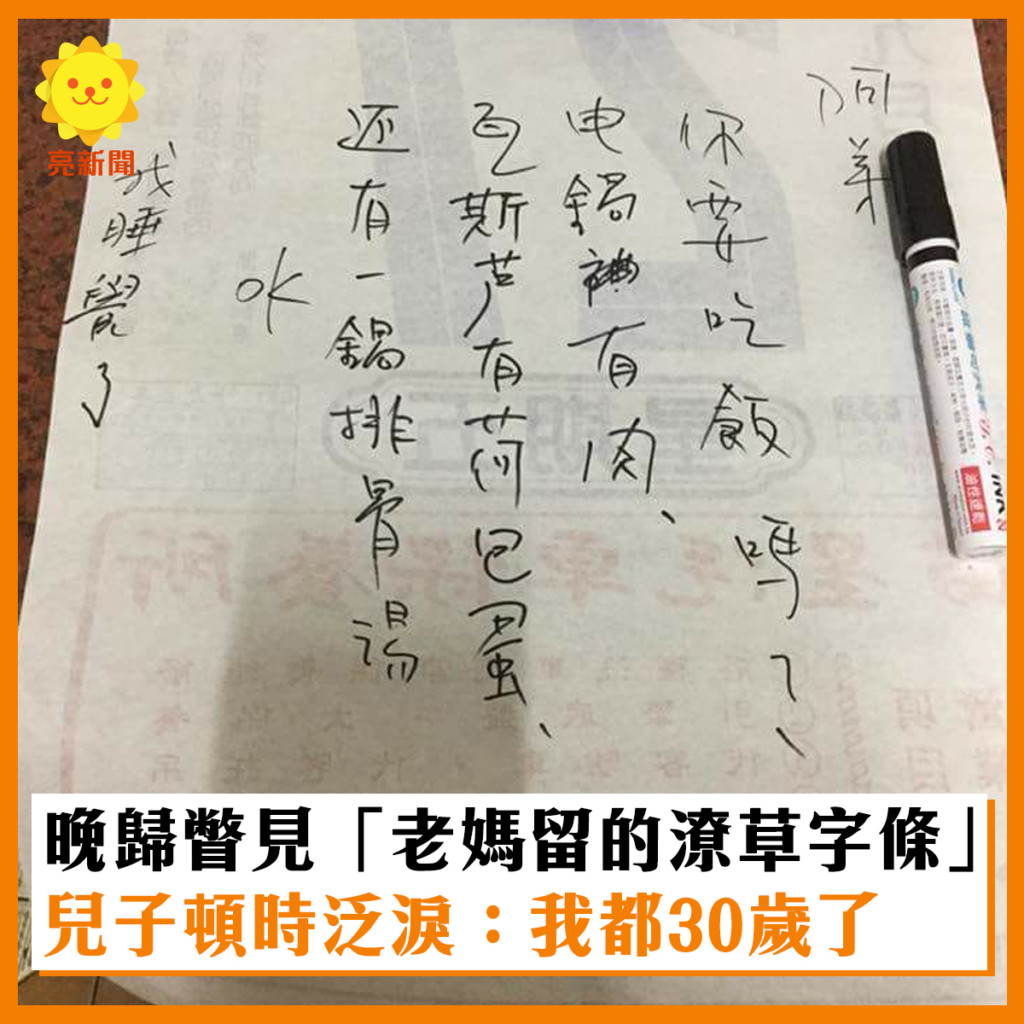 亮新聞
阿弟
你要吃飯嗎?、
电鍋裡有肉、
瓦斯芦有荷包蛋、
还有一鍋排骨湯
OK
我睡覺了
油性速乾
INK
晚歸瞥見「老媽留的潦草字條」
兒子頓時泛淚：我都30歲了